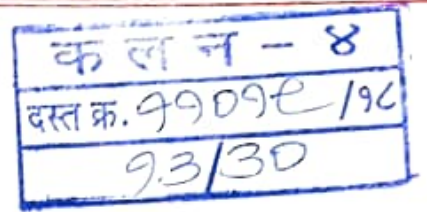 क ल न - ४
दस्त क्र. ११०१९/१८
१३/३०